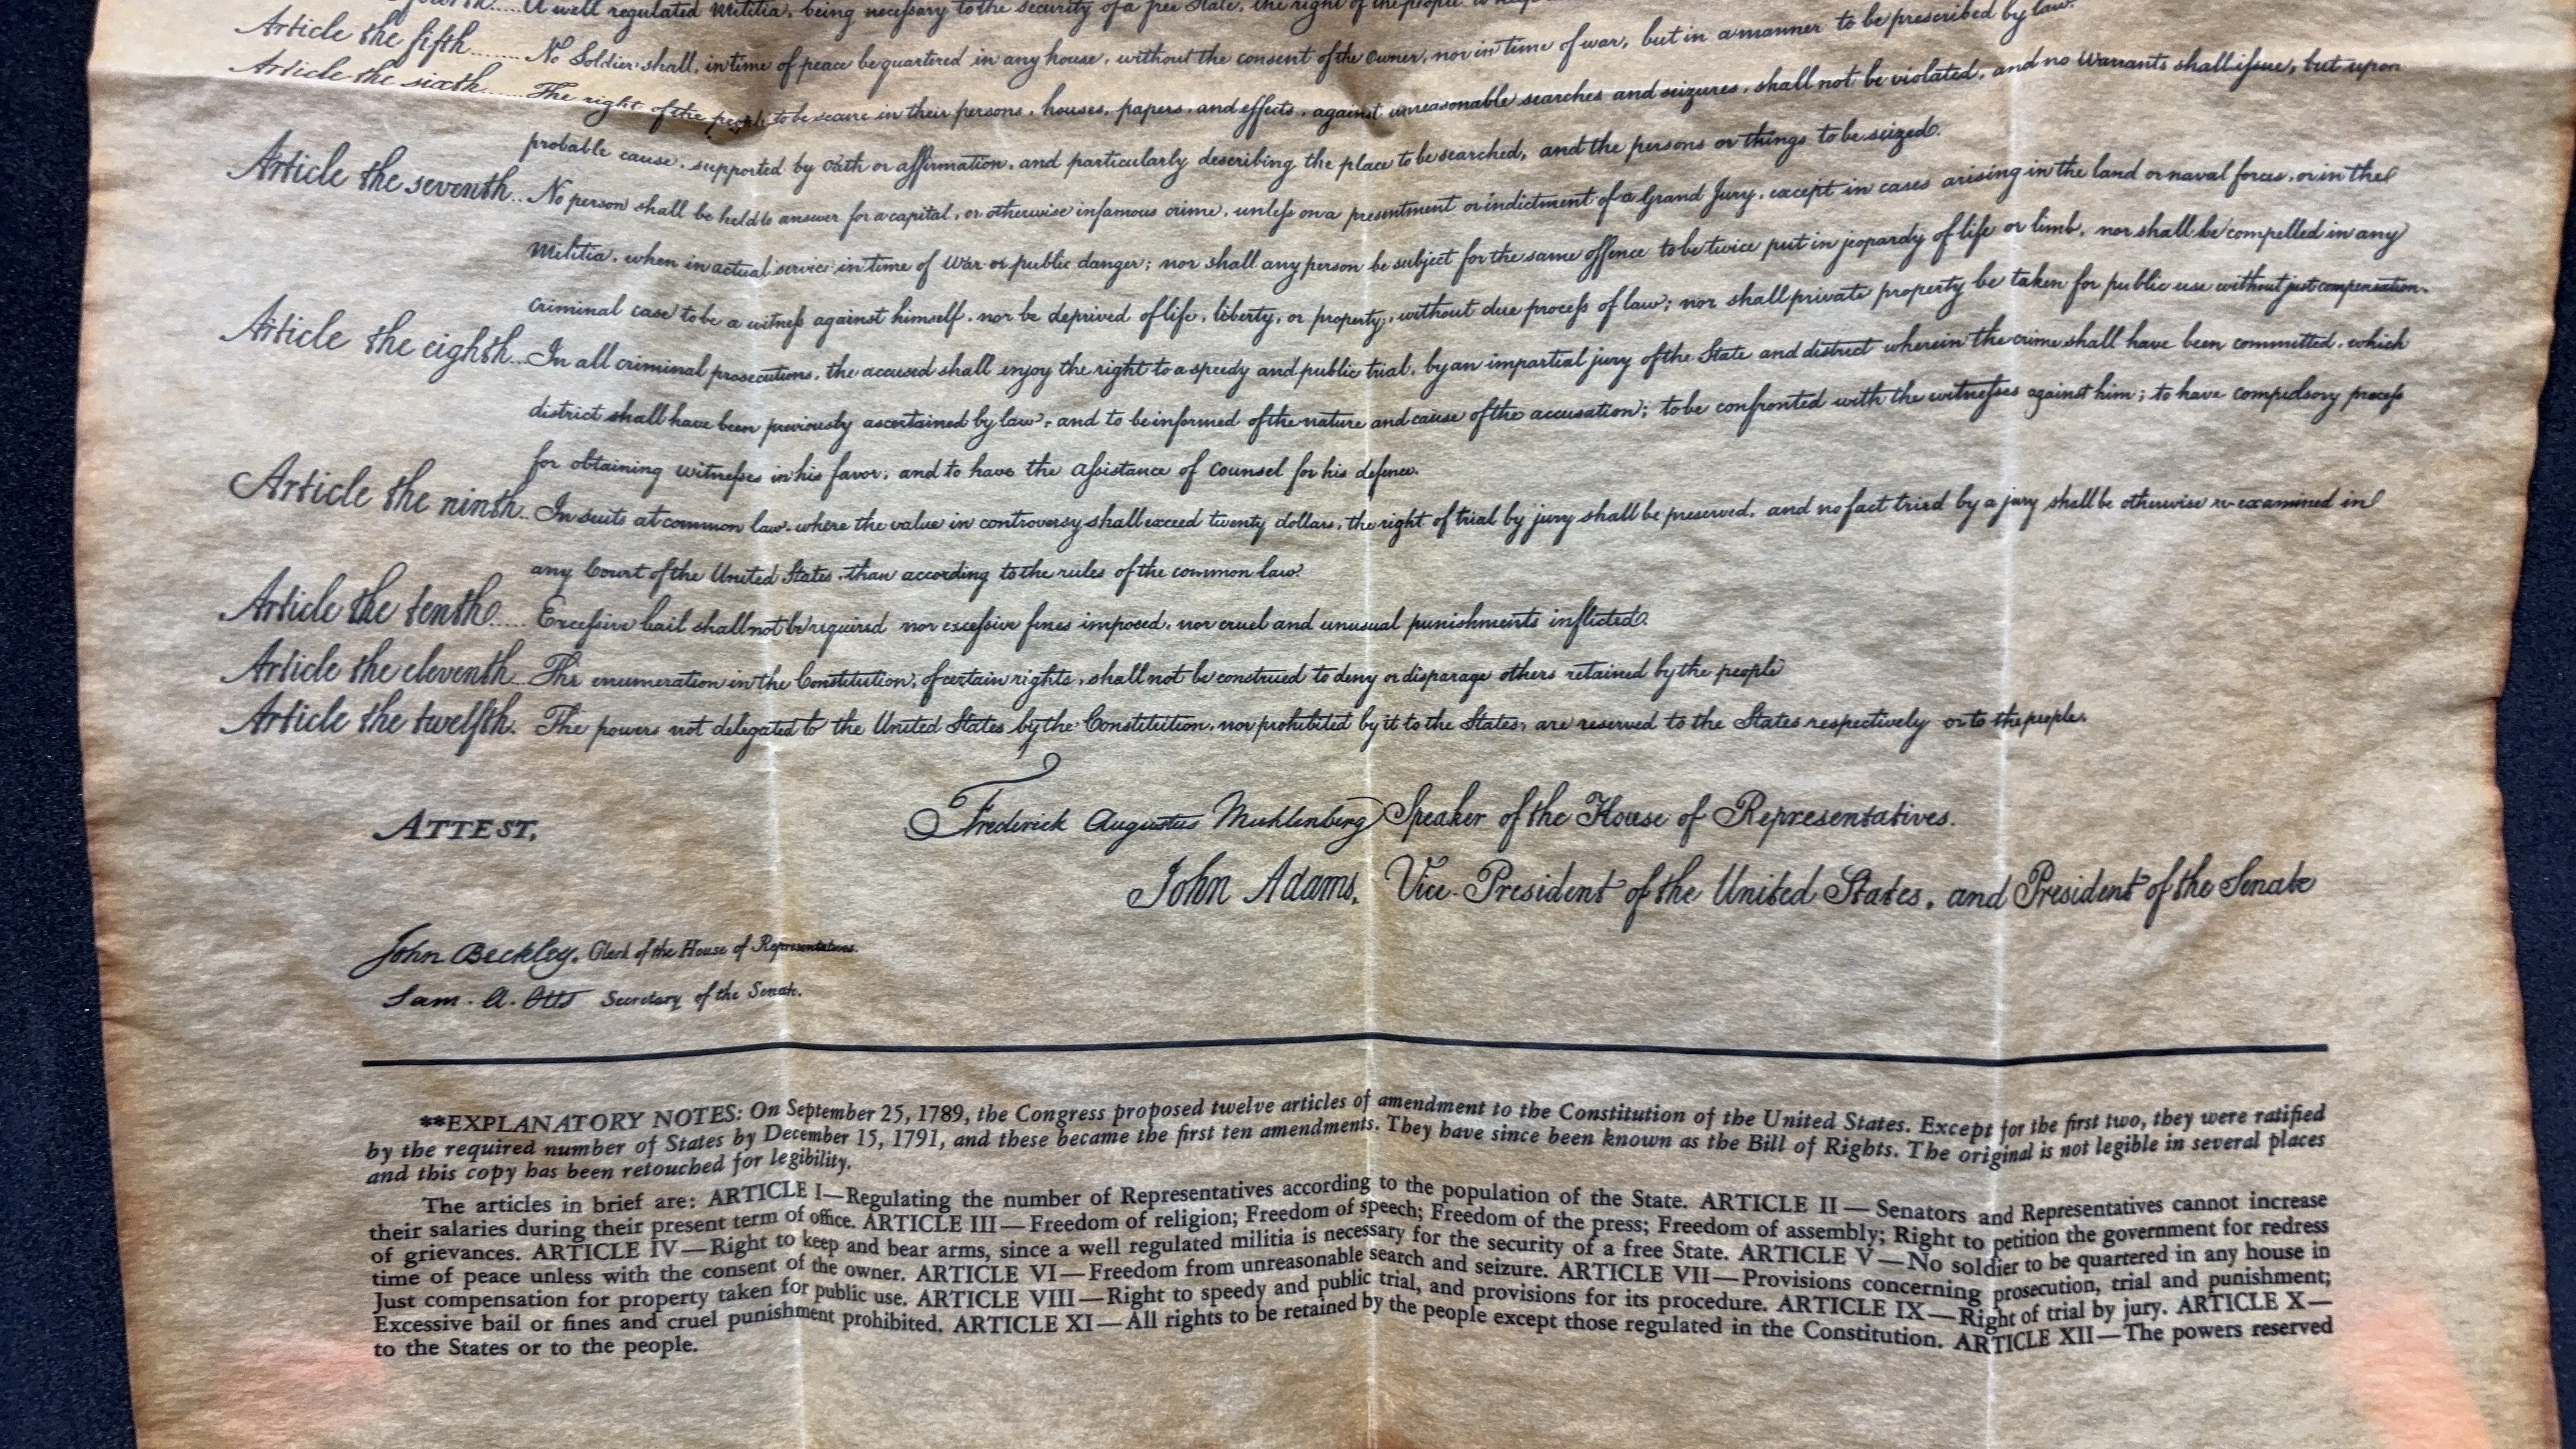 A well regulated Militia, being necessary to the security of a free State, the right of the people
Article the fifth....... No Soldier shall, in time of peace be quartered in any house, without the consent of the Owner, nor in time of war, but in a manner to be prescribed by law.
Article the sixth....... The right of the people to be secure in their persons, houses, papers, and effects, against unreasonable searches and seizures, shall not be violated, and no Warrants shall issue, but upon
probable cause, supported by Oath or affirmation, and particularly describing the place to be searched, and the persons or things to be seized.
Article the seventh.. No person shall be held to answer for a capital, or otherwise infamous crime, unless on a presentment or indictment of a Grand Jury, except in cases arising in the land or naval forces, or in the
Militia, when in actual service in time of War or public danger; nor shall any person be subject for the same offence to be twice put in jeopardy of life or limb, nor shall be compelled in any
criminal case to be a witness against himself, nor be deprived of life, liberty, or property, without due process of law; nor shall private property be taken for public use without just compensation.
Article the eighth... In all criminal prosecutions, the accused shall enjoy the right to a speedy and public trial, by an impartial jury of the State and district wherein the crime shall have been committed, which
district shall have been previously ascertained by law, and to be informed of the nature and cause of the accusation; to be confronted with the witnesses against him; to have compulsory process
for obtaining witnesses in his favor, and to have the assistance of counsel for his defence.
Article the ninth.. In suits at common law, where the value in controversy shall exceed twenty dollars, the right of trial by jury shall be preserved, and no fact tried by a jury shall be otherwise re-examined in
any Court of the United States, than according to the rules of the common law.
Article the tenth..... Excessive bail shall not be required nor excessive fines imposed, nor cruel and unusual punishments inflicted.
Article the eleventh... The enumeration in the Constitution, of certain rights, shall not be construed to deny or disparage others retained by the people
Article the twelfth. The powers not delegated to the United States by the Constitution, nor prohibited by it to the States, are reserved to the States respectively or to the people.
ATTEST, Frederick Augustus Muhlenberg Speaker of the House of Representatives.
John Adams, Vice-President of the United States, and President of the Senate
John Beckley, Clerk of the House of Representatives.
Sam. A. Otis Secretary of the Senate.
**EXPLANATORY NOTES: On September 25, 1789, the Congress proposed twelve articles of amendment to the Constitution of the United States. Except for the first two, they were ratified
by the required number of States by December 15, 1791, and these became the first ten amendments. They have since been known as the Bill of Rights. The original is not legible in several places
and this copy has been retouched for legibility.
The articles in brief are: ARTICLE I—Regulating the number of Representatives according to the population of the State. ARTICLE II — Senators and Representatives cannot increase
their salaries during their present term of office. ARTICLE III — Freedom of religion; Freedom of speech; Freedom of the press; Freedom of assembly; Right to petition the government for redress
of grievances. ARTICLE IV—Right to keep and bear arms, since a well regulated militia is necessary for the security of a free State. ARTICLE V—No soldier to be quartered in any house in
time of peace unless with the consent of the owner. ARTICLE VI—Freedom from unreasonable search and seizure. ARTICLE VII—Provisions concerning prosecution, trial and punishment;
Just compensation for property taken for public use. ARTICLE VIII—Right to speedy and public trial, and provisions for its procedure. ARTICLE IX—Right of trial by jury. ARTICLE X—
Excessive bail or fines and cruel punishment prohibited. ARTICLE XI—All rights to be retained by the people except those regulated in the Constitution. ARTICLE XII—The powers reserved
to the States or to the people.